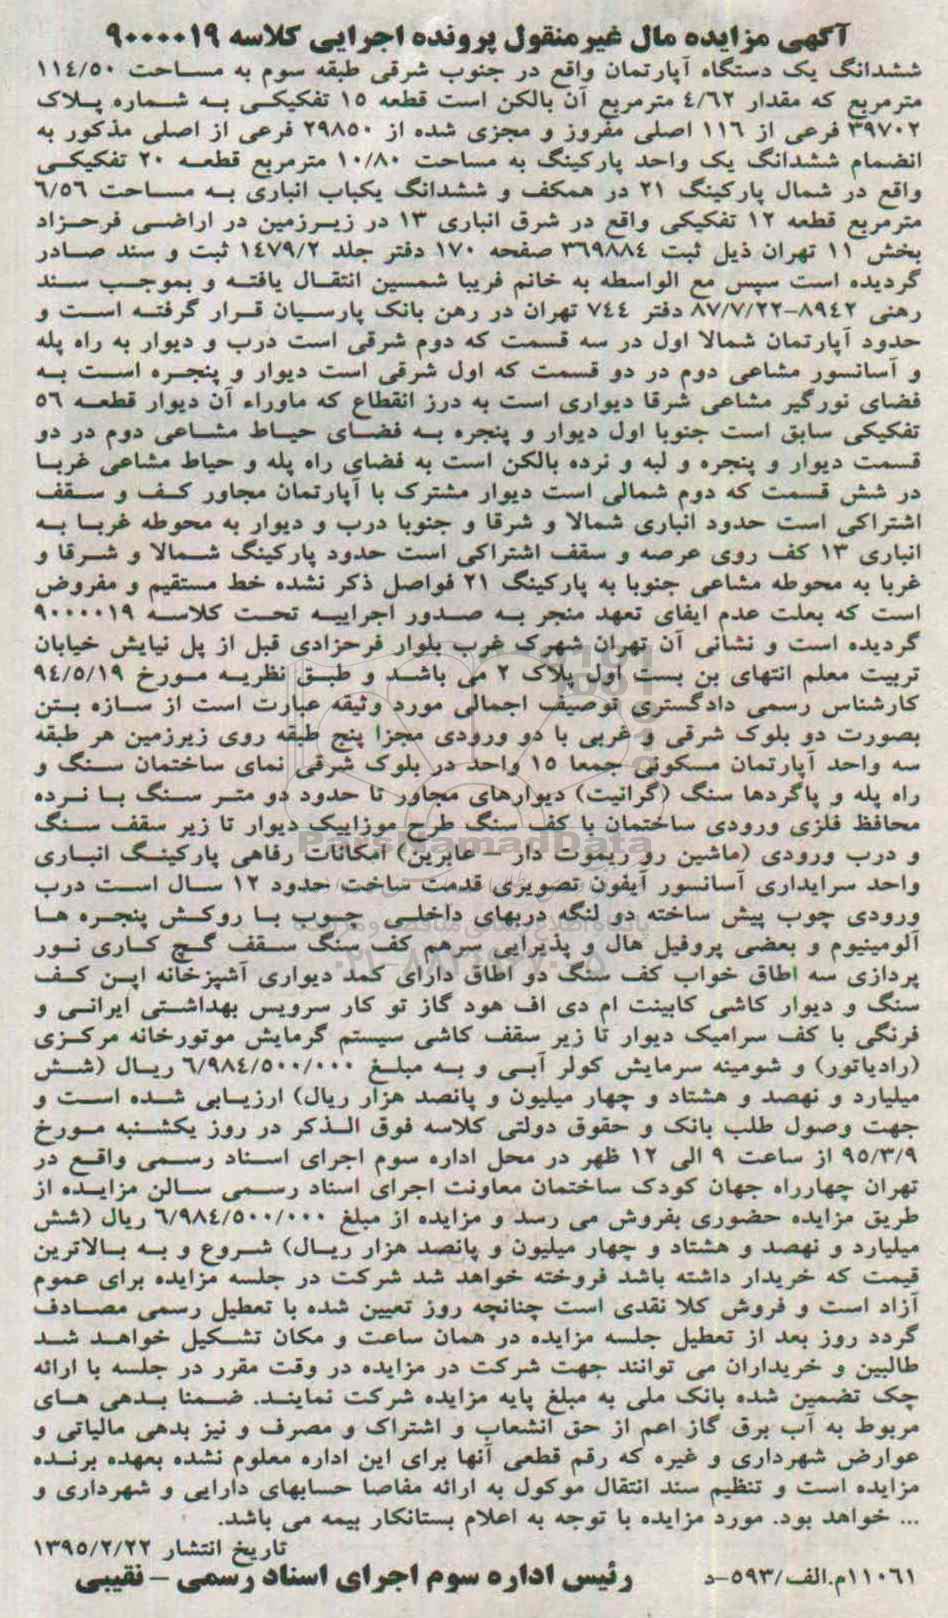 آگهی مزایده مال غیرمنقول پرونده اجرایی کلاسه ۹۰۰۰۰۱۹
ششدانگ یک دستگاه آپارتمان واقع در جنوب شرقی طبقه سوم به مساحت ۱۱۴/۵۰
مترمربع که مقدار ۴/۶۲ مترمربع آن بالکن است قطعه ۱۵ تفکیکی به شماره پلاک
۳۹۷۰۲ فرعی از ۱۱۶ اصلی مفروز و مجزی شده از ۲۹۸۵۰ فرعی از اصلی مذکور به
انضمام ششدانگ یک واحد پارکینگ به مساحت ۱۰/۸۰ مترمربع قطعه ۲۰ تفکیکی
واقع در شمال پارکینگ ۲۱ در همکف و ششدانگ یکباب انباری به مساحت ۶/۵۶
مترمربع قطعه ۱۲ تفکیکی واقع در شرق انباری ۱۳ در زیرزمین در اراضی فرحزاد
بخش ۱۱ تهران ذیل ثبت ۳۶۹۸۸۴ صفحه ۱۷۰ دفتر جلد ۱۴۷۹/۲ ثبت و سند صادر
گردیده است سپس مع الواسطه به خانم فریبا شمسین انتقال یافته و بموجب سند
رهنی ۸۹۴۲-۸۷/۷/۲۲ دفتر ۷۴۴ تهران در رهن بانک پارسیان قرار گرفته است و
حدود آپارتمان شمالا اول در سه قسمت که دوم شرقی است درب و دیوار به راه پله
و آسانسور مشاعی دوم در دو قسمت که اول شرقی است دیوار و پنجره است به
فضای نورگیر مشاعی شرقا دیواری است به درز انقطاع که ماوراء آن دیوار قطعه ۵۶
تفکیکی سابق است جنوبا اول دیوار و پنجره به فضای حیاط مشاعی دوم در دو
قسمت دیوار و پنجره و لبه و نرده بالکن است به فضای راه پله و حیاط مشاعی غربا
در شش قسمت که دوم شمالی است دیوار مشترک با آپارتمان مجاور کف و سقف
اشتراکی است حدود انباری شمالا و شرقا و جنوبا درب و دیوار به محوطه غربا به
انباری ۱۳ کف روی عرصه و سقف اشتراکی است حدود پارکینگ شمالا و شرقا و
غربا به محوطه مشاعی جنوبا به پارکینگ ۲۱ فواصل ذکر نشده خط مستقیم و مفروض
است که بعلت عدم ایفای تعهد منجر به صدور اجراییه تحت کلاسه ۹۰۰۰۰۱۹
گردیده است و نشانی آن تهران شهرک غرب بلوار فرحزادی قبل از پل نیایش خیابان
تربیت معلم انتهای بن بست اول پلاک ۲ می باشد و طبق نظریه مورخ ۹۴/۵/۱۹
کارشناس رسمی دادگستری توصیف اجمالی مورد وثیقه عبارت است از سازه بتن
بصورت دو بلوک شرقی و غربی با دو ورودی مجزا پنج طبقه روی زیرزمین هر طبقه
سه واحد آپارتمان مسکونی جمعا ۱۵ واحد در بلوک شرقی نمای ساختمان سنگ و
راه پله و پاگردها سنگ (گرانیت) دیوارهای مجاور تا حدود دو متر سنگ با نرده
محافظ فلزی ورودی ساختمان با کف سنگ طرح موزاییک دیوار تا زیر سقف سنگ
و درب ورودی (ماشین رو ریموت دار – عابرین) امکانات رفاهی پارکینگ انباری
واحد سرایداری آسانسور آیفون تصویری قدمت ساخت حدود ۱۲ سال است درب
ورودی چوب پیش ساخته دو لنگه دربهای داخلی چوب با روکش پنجره ها
آلومینیوم و بعضی پروفیل هال و پذیرایی سرهم کف سنگ سقف گچ کاری نور
پردازی سه اطاق خواب کف سنگ دو اطاق دارای کمد دیواری آشپزخانه اپن کف
سنگ و دیوار کاشی کابینت ام دی اف هود گاز تو کار سرویس بهداشتی ایرانی و
فرنگی با کف سرامیک دیوار تا زیر سقف کاشی سیستم گرمایش موتورخانه مرکزی
(رادیاتور) و شومینه سرمایش کولر آبی و به مبلغ ۶/۹۸۴/۵۰۰/۰۰۰ ریال (شش
میلیارد و نهصد و هشتاد و چهار میلیون و پانصد هزار ریال) ارزیابی شده است و
جهت وصول طلب بانک و حقوق دولتی کلاسه فوق الذکر در روز یکشنبه مورخ
۹۵/۳/۹ از ساعت ۹ الی ۱۲ ظهر در محل اداره سوم اجرای اسناد رسمی واقع در
تهران چهارراه جهان کودک ساختمان معاونت اجرای اسناد رسمی سالن مزایده از
طریق مزایده حضوری بفروش می رسد و مزایده از مبلغ ۶/۹۸۴/۵۰۰/۰۰۰ ریال (شش
میلیارد و نهصد و هشتاد و چهار میلیون و پانصد هزار ریال) شروع و به بالاترین
قیمت که خریدار داشته باشد فروخته خواهد شد شرکت در جلسه مزایده برای عموم
آزاد است و فروش کلا نقدی است چنانچه روز تعیین شده با تعطیل رسمی مصادف
گردد روز بعد از تعطیل جلسه مزایده در همان ساعت و مکان تشکیل خواهد شد
طالبین و خریداران می توانند جهت شرکت در مزایده در وقت مقرر در جلسه با ارائه
چک تضمین شده بانک ملی به مبلغ پایه مزایده شرکت نمایند. ضمنا بدهی های
مربوط به آب برق گاز اعم از حق انشعاب و اشتراک و مصرف و نیز بدهی مالیاتی و
عوارض شهرداری و غیره که رقم قطعی آنها برای این اداره معلوم نشده بعهده برنده
مزایده است و تنظیم سند انتقال موکول به ارائه مفاصا حسابهای دارایی و شهرداری و
... خواهد بود. مورد مزایده با توجه به اعلام بستانکار بیمه می باشد.
تاریخ انتشار ۱۳۹۵/۲/۲۲
۱۱۰۶۱م.الف/۵۹۳-د رئیس اداره سوم اجرای اسناد رسمی – نقیبی
ParsNamadData